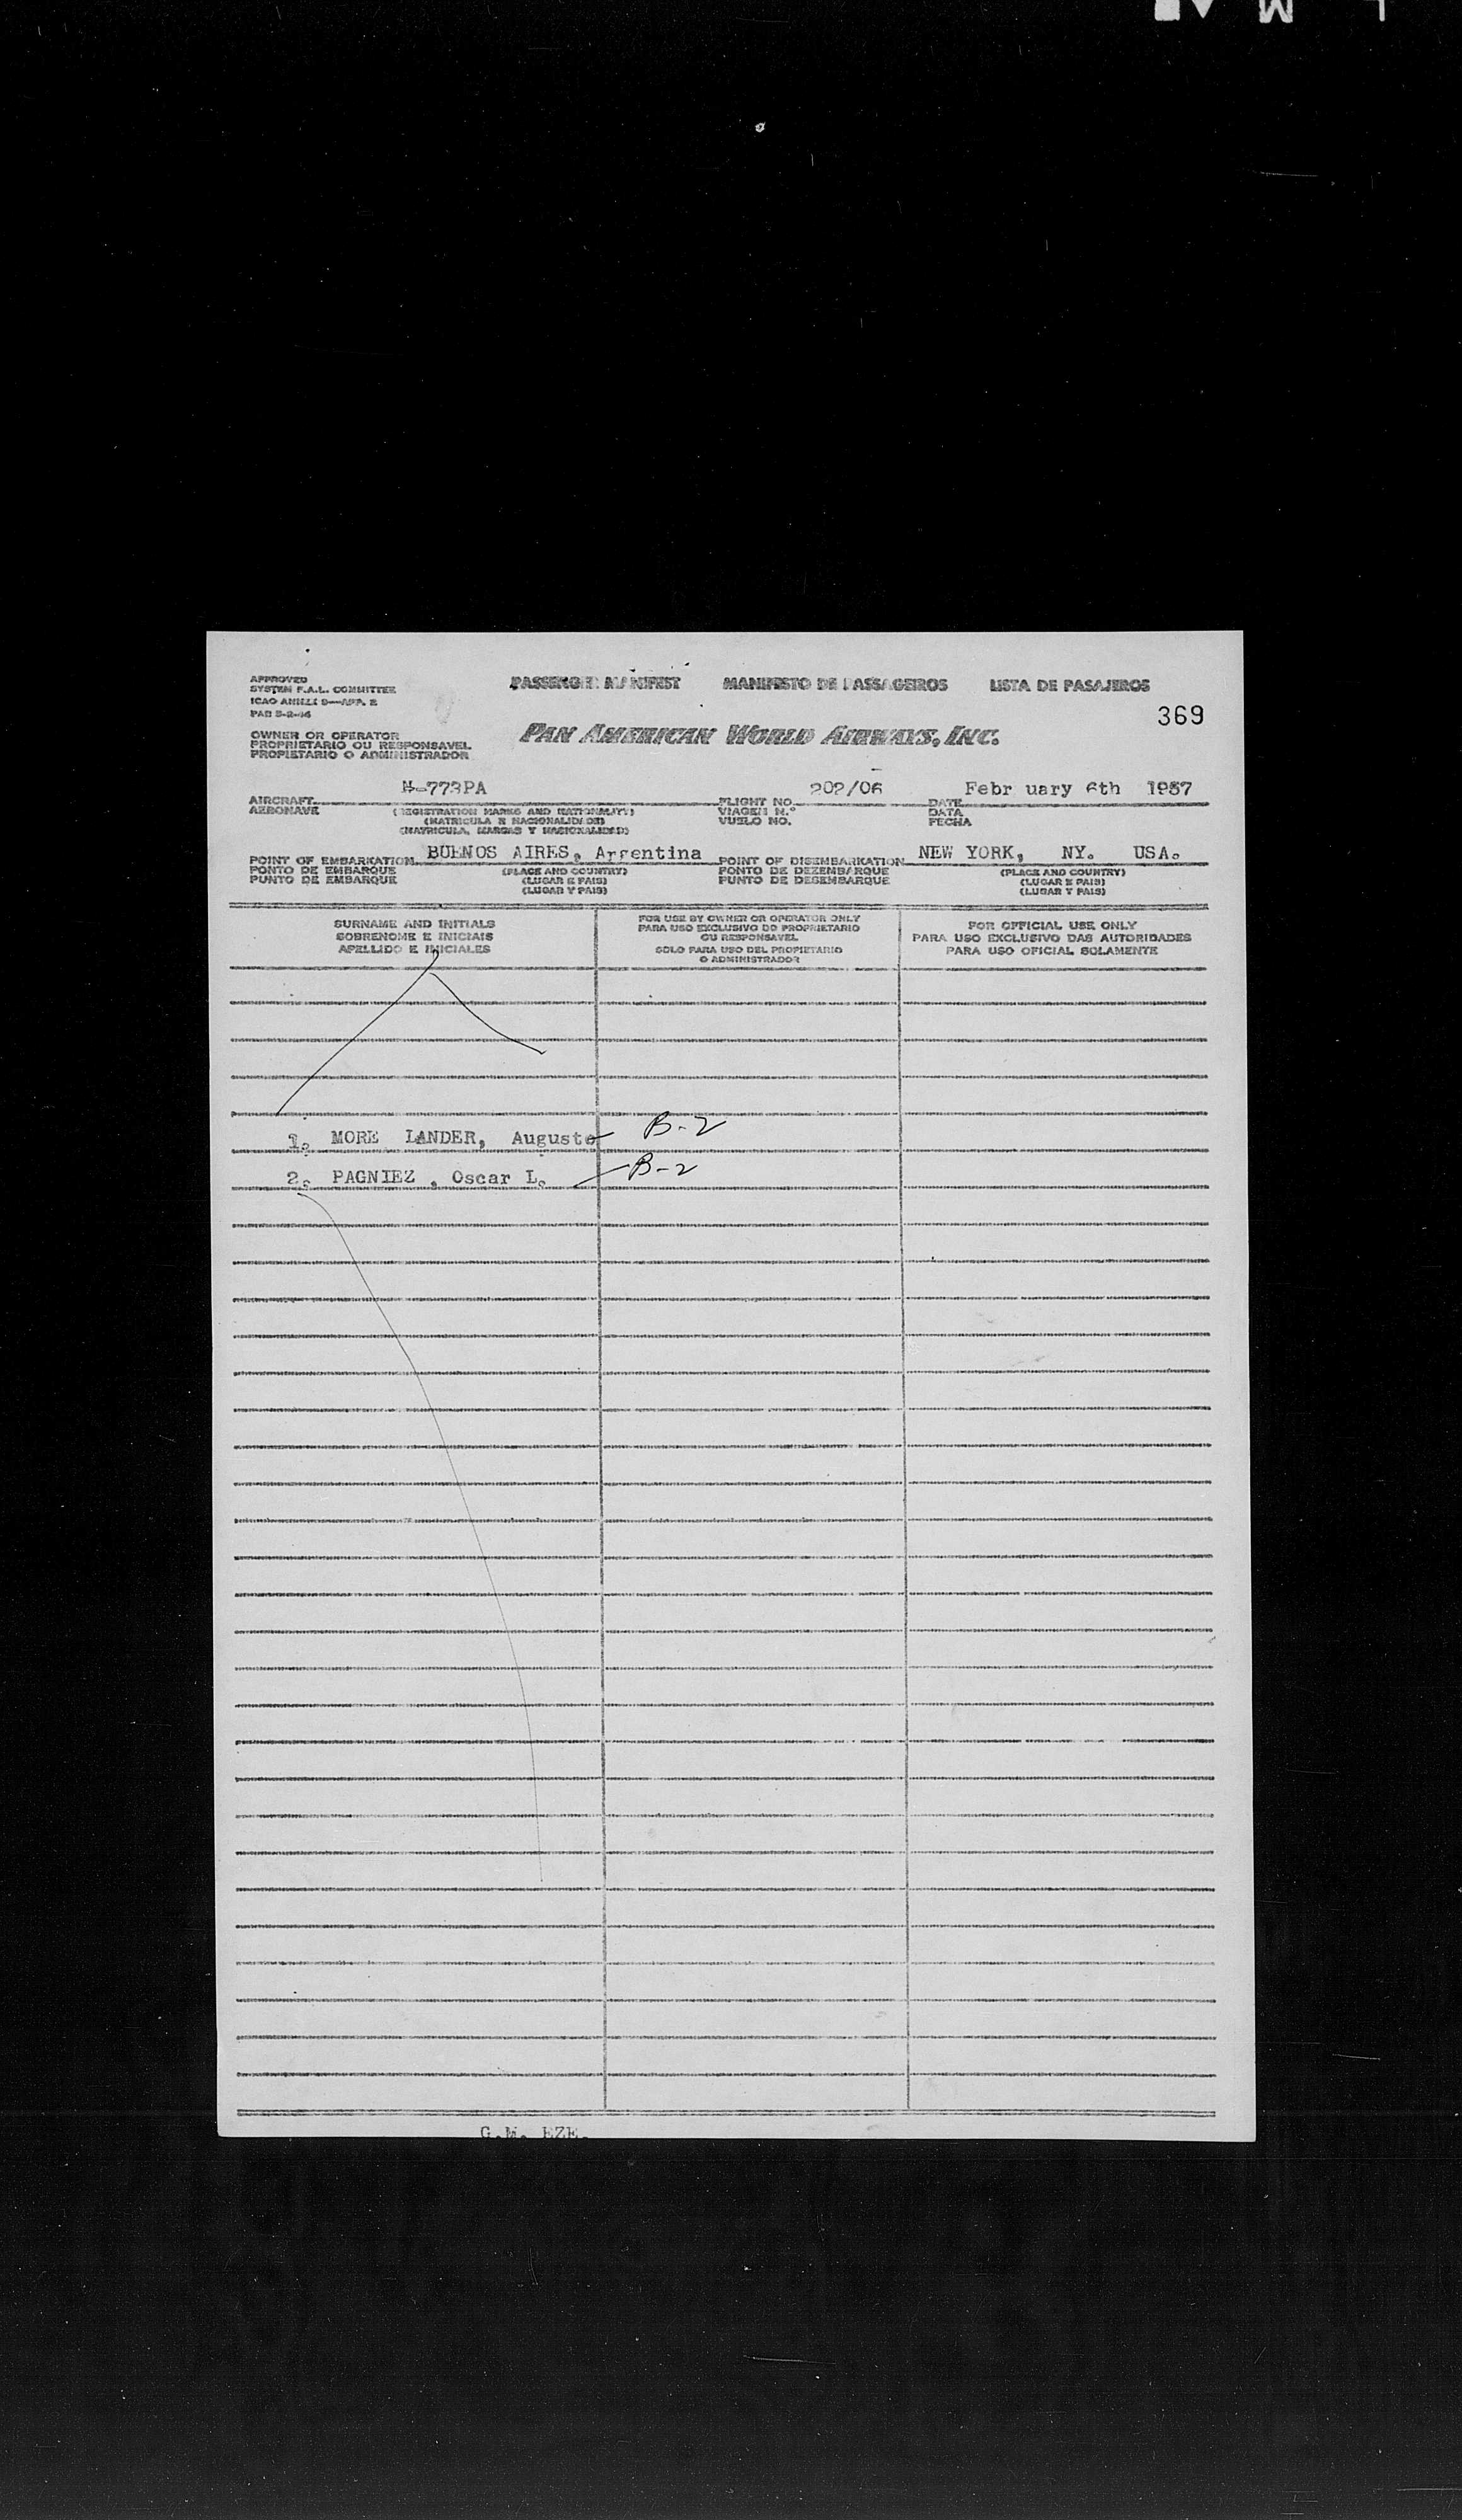 APPROVED
SYSTEM F.A.L. COMMITTEE
ICAO ANNEX 9—APP. 2
PASSENGER MANIFEST MANIFESTO DE PASSAGEIROS LISTA DE PASAJEROS
369
OWNER OR OPERATOR
PROPRIETARIO OU RESPONSAVEL
PROPIETARIO O ADMINISTRADOR
PAN AMERICAN WORLD AIRWAYS, INC.
N-773PA 202/06 Febr uary 6th 1957
AIRCRAFT FLIGHT NO. DATE
AERONAVE (REGISTRATION MARKS AND NATIONALITY) VIAGEM N.° DATA
(MATRICULA E NACIONALIDADE) VUELO NO. FECHA
(MATRICULA, MARCAS Y NACIONALIDAD)
POINT OF EMBARKATION BUENOS AIRES, Argentina POINT OF DISEMBARKATION NEW YORK, NY. USA.
PONTO DE EMBARQUE (PLACE AND COUNTRY) PONTO DE DEZEMBARQUE (PLACE AND COUNTRY)
PUNTO DE EMBARQUE (LUGAR E PAIS) PUNTO DE DESEMBARQUE (LUGAR E PAIS)
(LUGAR Y PAIS) (LUGAR Y PAIS)
SURNAME AND INITIALS
SOBRENOME E INICIAIS
APELLIDO E INICIALES
FOR USE BY OWNER OR OPERATOR ONLY
PARA USO EXCLUSIVO DO PROPRIETARIO
OU RESPONSAVEL
SOLO PARA USO DEL PROPIETARIO
O ADMINISTRADOR
FOR OFFICIAL USE ONLY
PARA USO EXCLUSIVO DAS AUTORIDADES
PARA USO OFICIAL SOLAMENTE
1. MORE LANDER, Augusto B-2
2. PAGNIEZ , Oscar L. B-2
G.M. EZE.